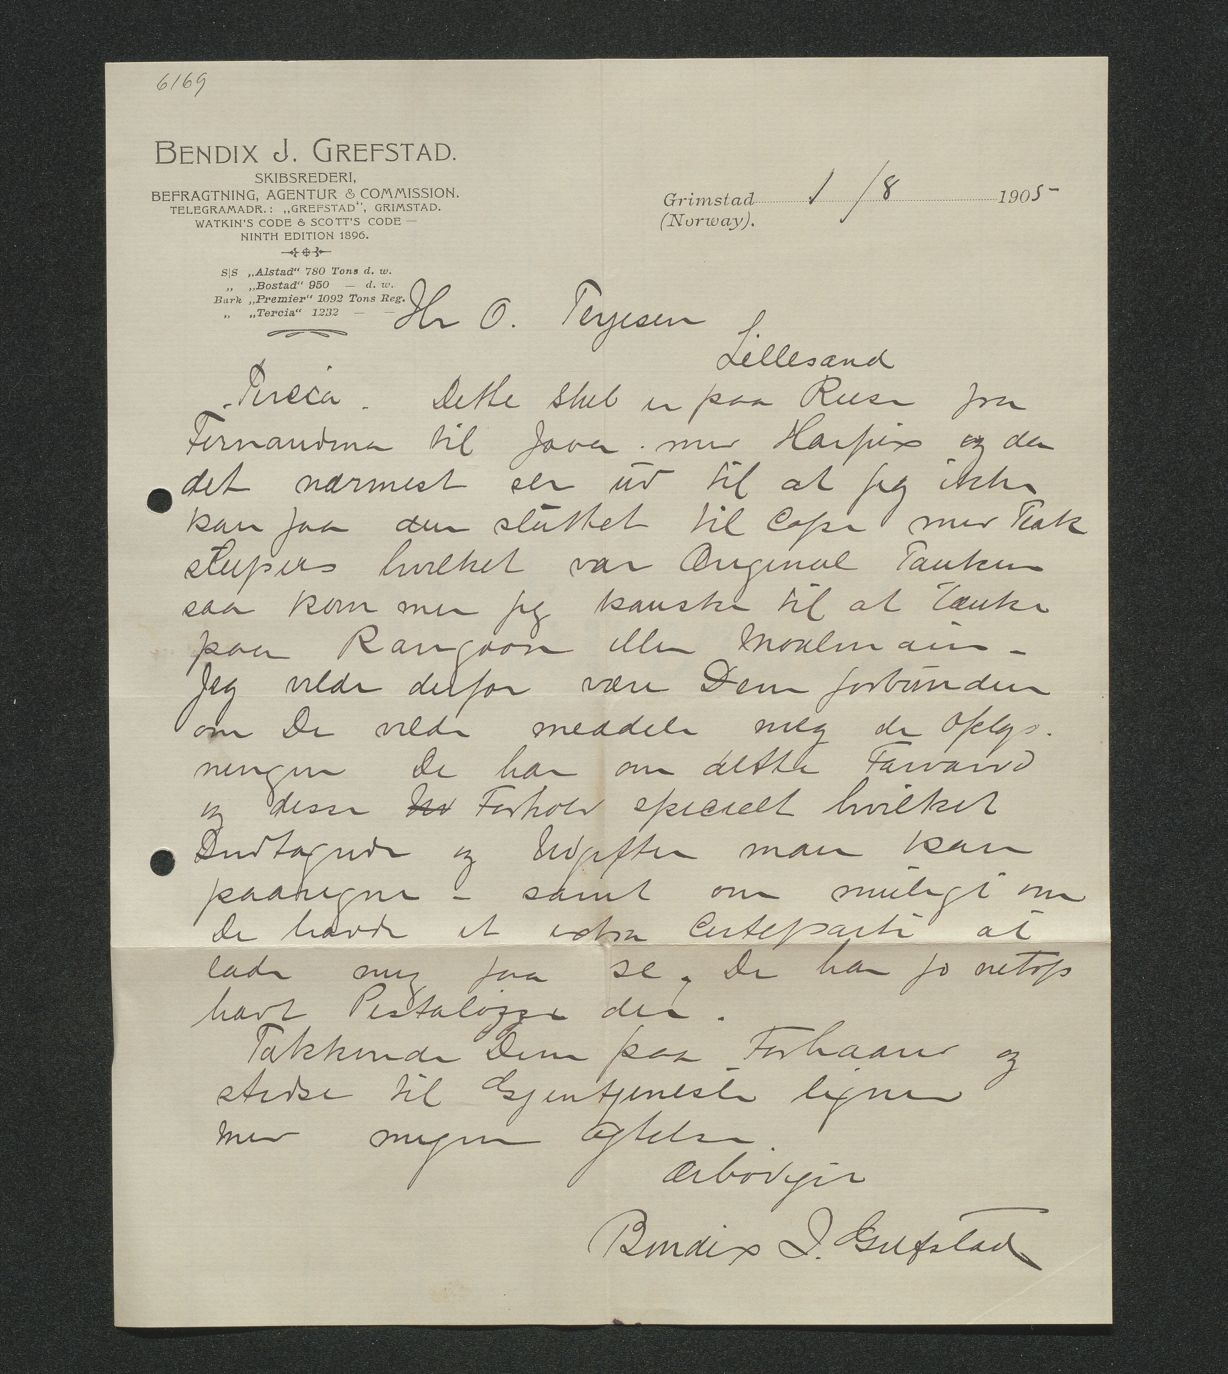 6169
BENDIX J. GREFSTAD.
SKIBSREDERI,
BEFRAGTNING, AGENTUR & COMMISSION.
TELEGRAMADR.: „GREFSTAD", GRIMSTAD.
WATKIN'S CODE & SCOTT'S CODE —
NINTH EDITION 1896.
S|S „Alstad" 780 Tons d. w.
„ „Bostad" 950 — d. w.
Bark „Premier" 1092 Tons Reg.
„ „Tercia" 1232 — —
Grimstad 1/8 1905
(Norway).
Hr O. Terjesen
Lillesand
Tercia. Dette Skib er paa Reise fra
Fernandina til Java med Harpix og da
det nærmest ser ud til at jeg ikke
kan faa den sluttet til Cape med Teak
sleepers hvilket var Original Tanken
saa kommer jeg kanske til at tænke
paa Rangoon eller Moulmain –
Jeg vilde derfor være Dem forbunden
om De vilde meddele meg de Oplys-
ninger De har om dette Farvand
og disse Forhold specielt hvilket
Dudtagende og Udgifter man kan
paaregne – samt om muligt om
De havde et extra Certeparti at
lade mig faa se. De har jo netop
havt Pestalozzi der.
Takkende Dem paa Forhaand og
stedse til Gjentjeneste tegner
med megen Agtelse
Ærbødigst
Bendix J. Grefstad